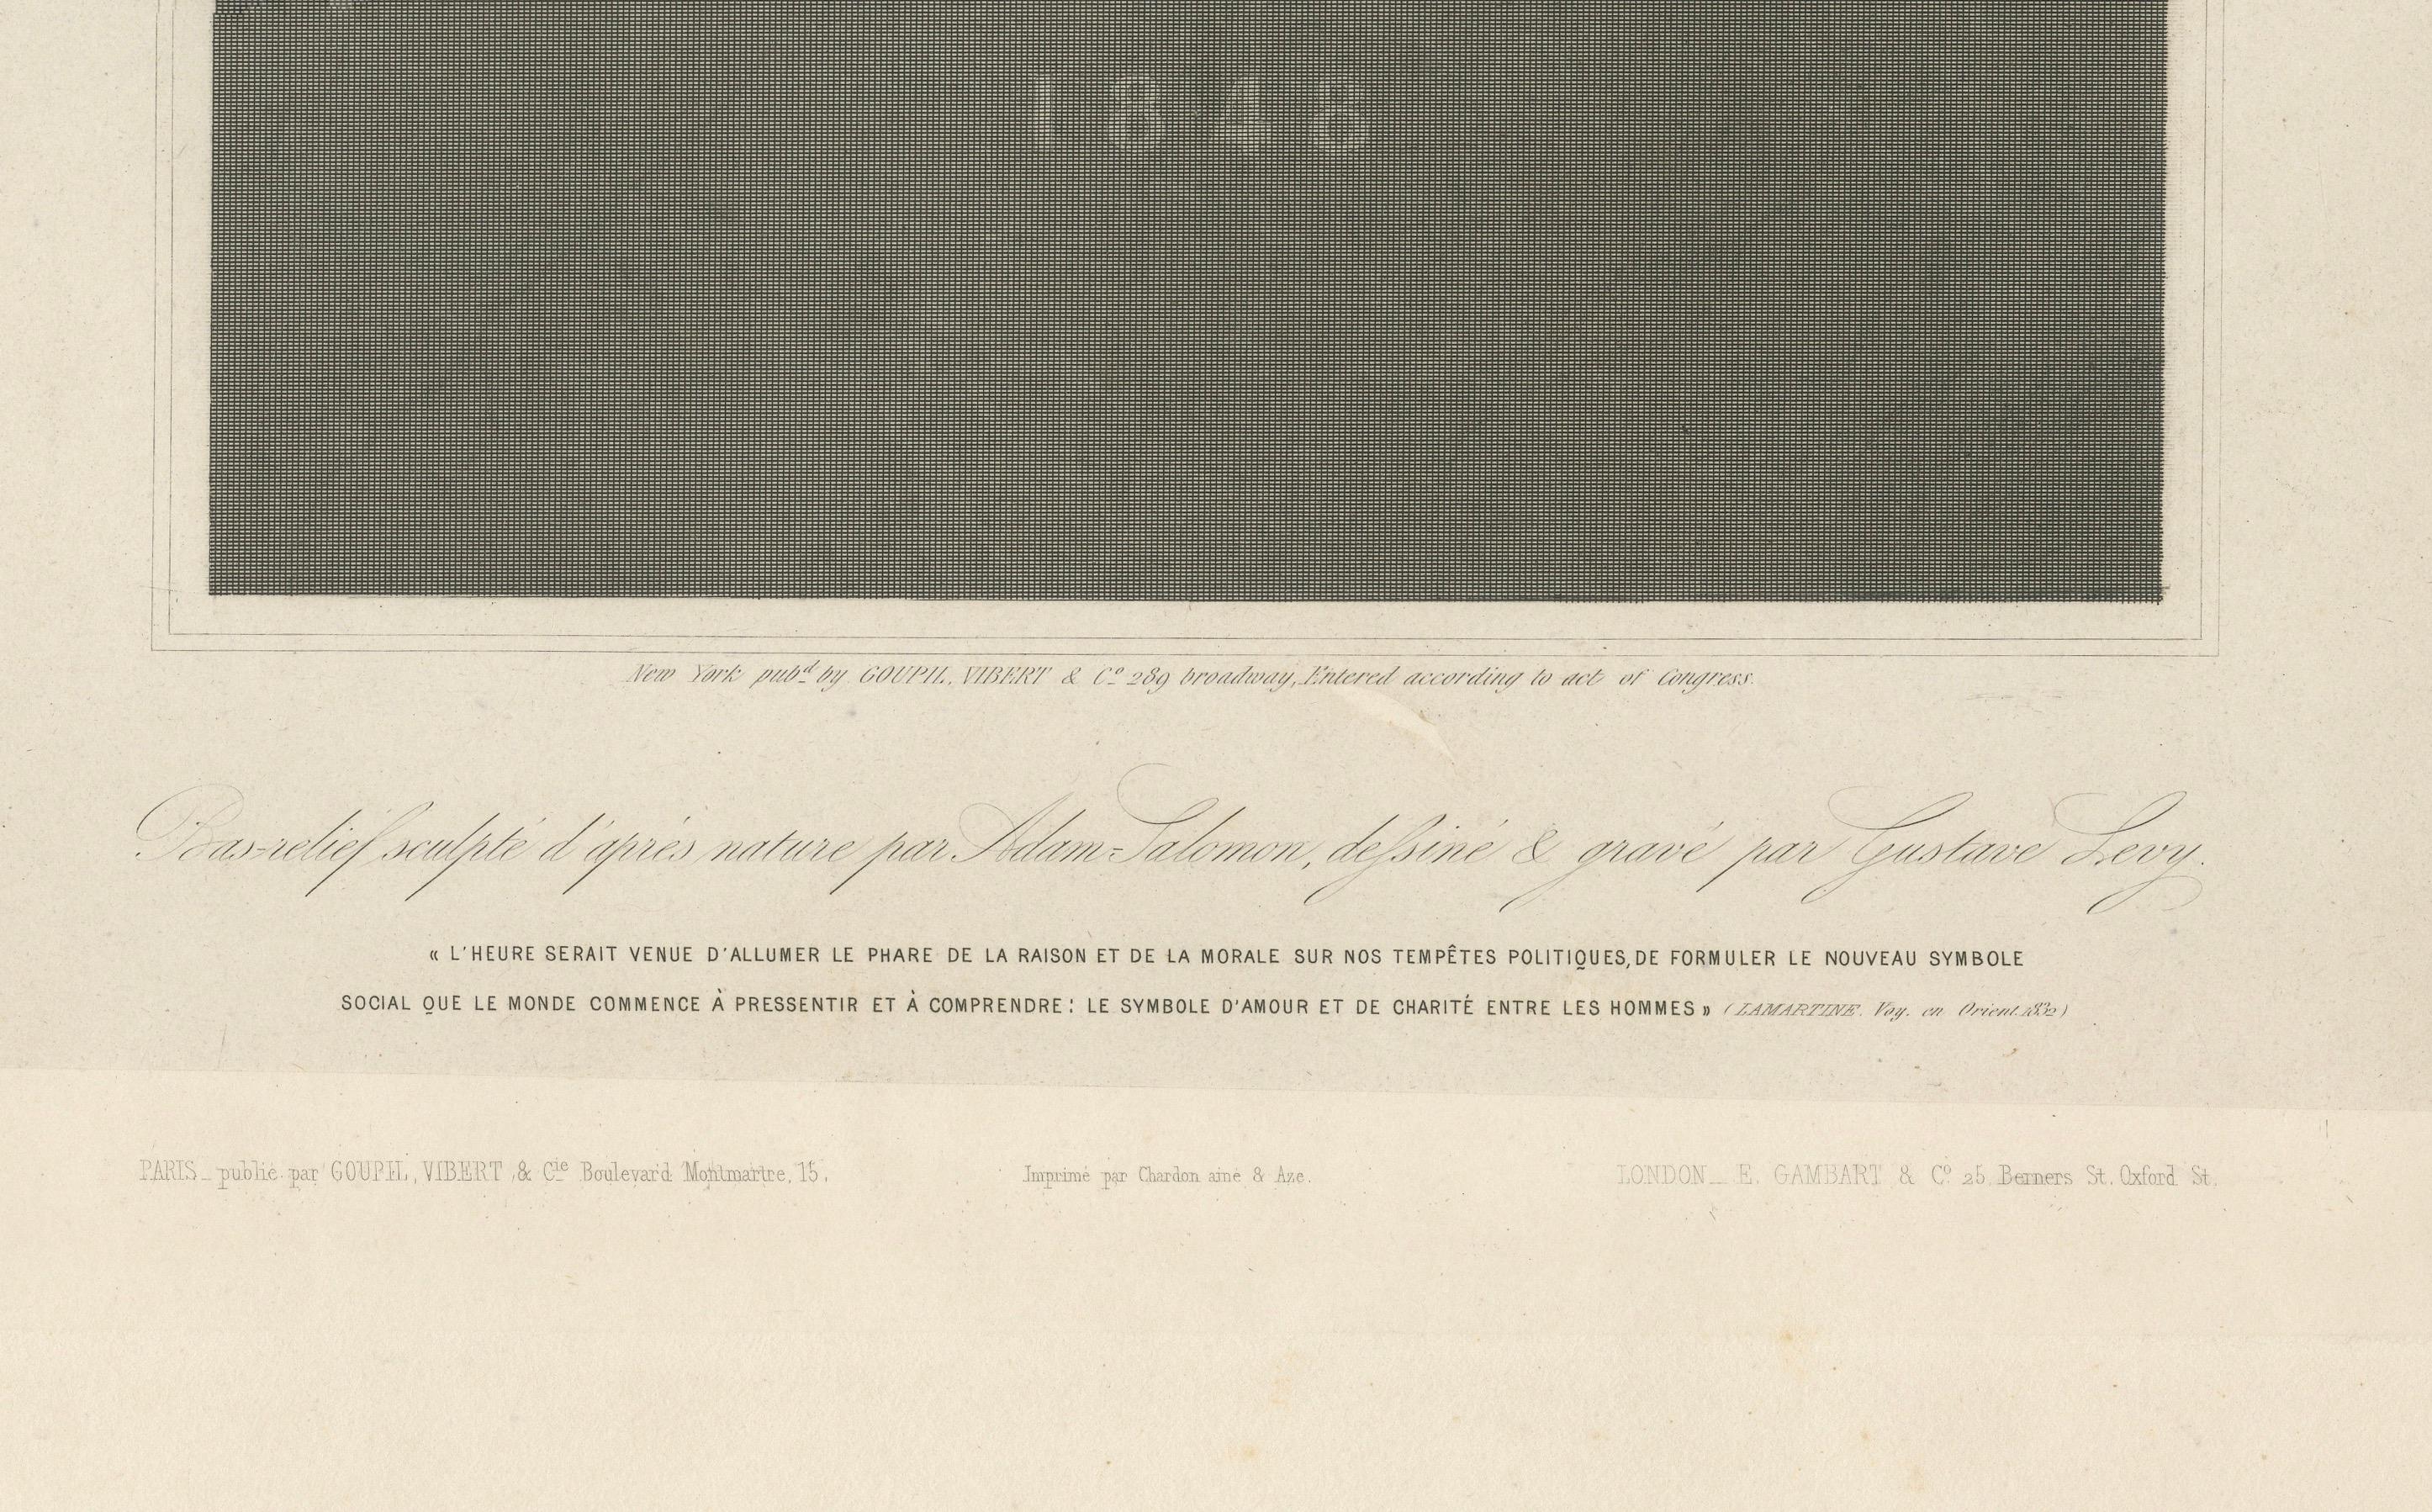 1848
New York pubd by GOUPIL, VIBERT & Co 289 broadway, Entered according to act of Congress.
Bas-relief sculpté d'après nature par Adam-Salomon, deſsiné & gravé par Gustave Levy.
« L'HEURE SERAIT VENUE D'ALLUMER LE PHARE DE LA RAISON ET DE LA MORALE SUR NOS TEMPÊTES POLITIQUES, DE FORMULER LE NOUVEAU SYMBOLE
SOCIAL QUE LE MONDE COMMENCE À PRESSENTIR ET À COMPRENDRE: LE SYMBOLE D'AMOUR ET DE CHARITÉ ENTRE LES HOMMES » (LAMARTINE. Voy. en Orient. 1832)
PARIS_ publié par GOUPIL, VIBERT & Cie Boulevard Montmartre, 15.
Imprimé par Chardon ainé & Aze.
LONDON_ E. GAMBART & Co 25 Berners St. Oxford St.